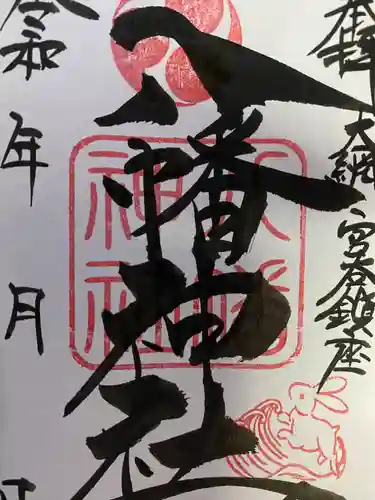 奉拝
大綱
宮谷鎮座
八幡神社
八幡神社
令和
年
月